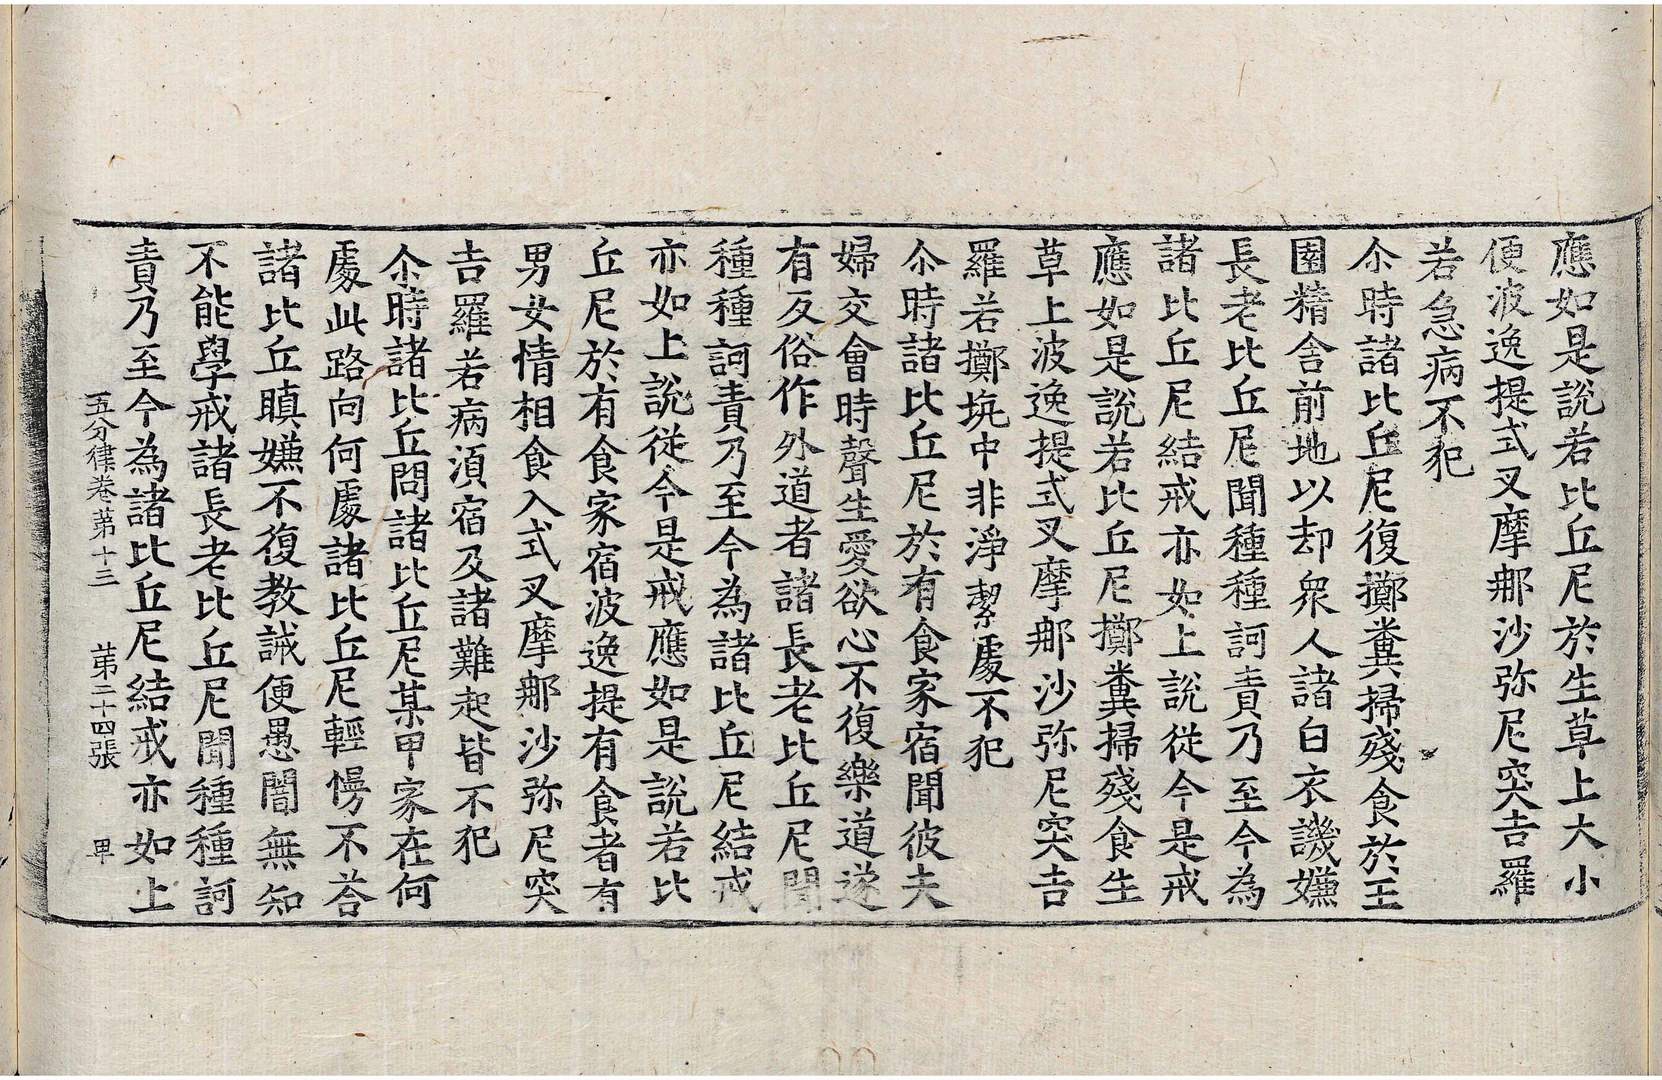 應如是說若比丘尼於生草上大小
便波逸提式叉摩那沙弥尼突吉羅
若急病不犯
尒時諸比丘尼復擲糞掃殘食於王
園精舍前地以却衆人諸白衣譏嫌
長老比丘尼聞種種訶責乃至今為
諸比丘尼結戒亦如上說從今是戒
應如是說若比丘尼擲糞掃殘食生
草上波逸提式叉摩那沙弥尼突吉
羅若擲坑中非淨潔處不犯
尒時諸比丘尼於有食家宿聞彼夫
婦交會時聲生愛欲心不復樂道遂
有反俗作外道者諸長老比丘尼聞
種種訶責乃至今為諸比丘尼結戒
亦如上說從今是戒應如是說若比
丘尼於有食家宿波逸提有食者有
男女情相食入式叉摩那沙弥尼突
吉羅若病湏宿及諸難起皆不犯
尒時諸比丘問諸比丘尼某甲家在何
處此路向何處諸比丘尼輕慢不荅
諸比丘瞋嫌不復教誡便愚闇無知
不能學戒諸長老比丘尼聞種種訶
責乃至今為諸比丘尼結戒亦如上
五分律卷苐十三 苐二十四張 卑